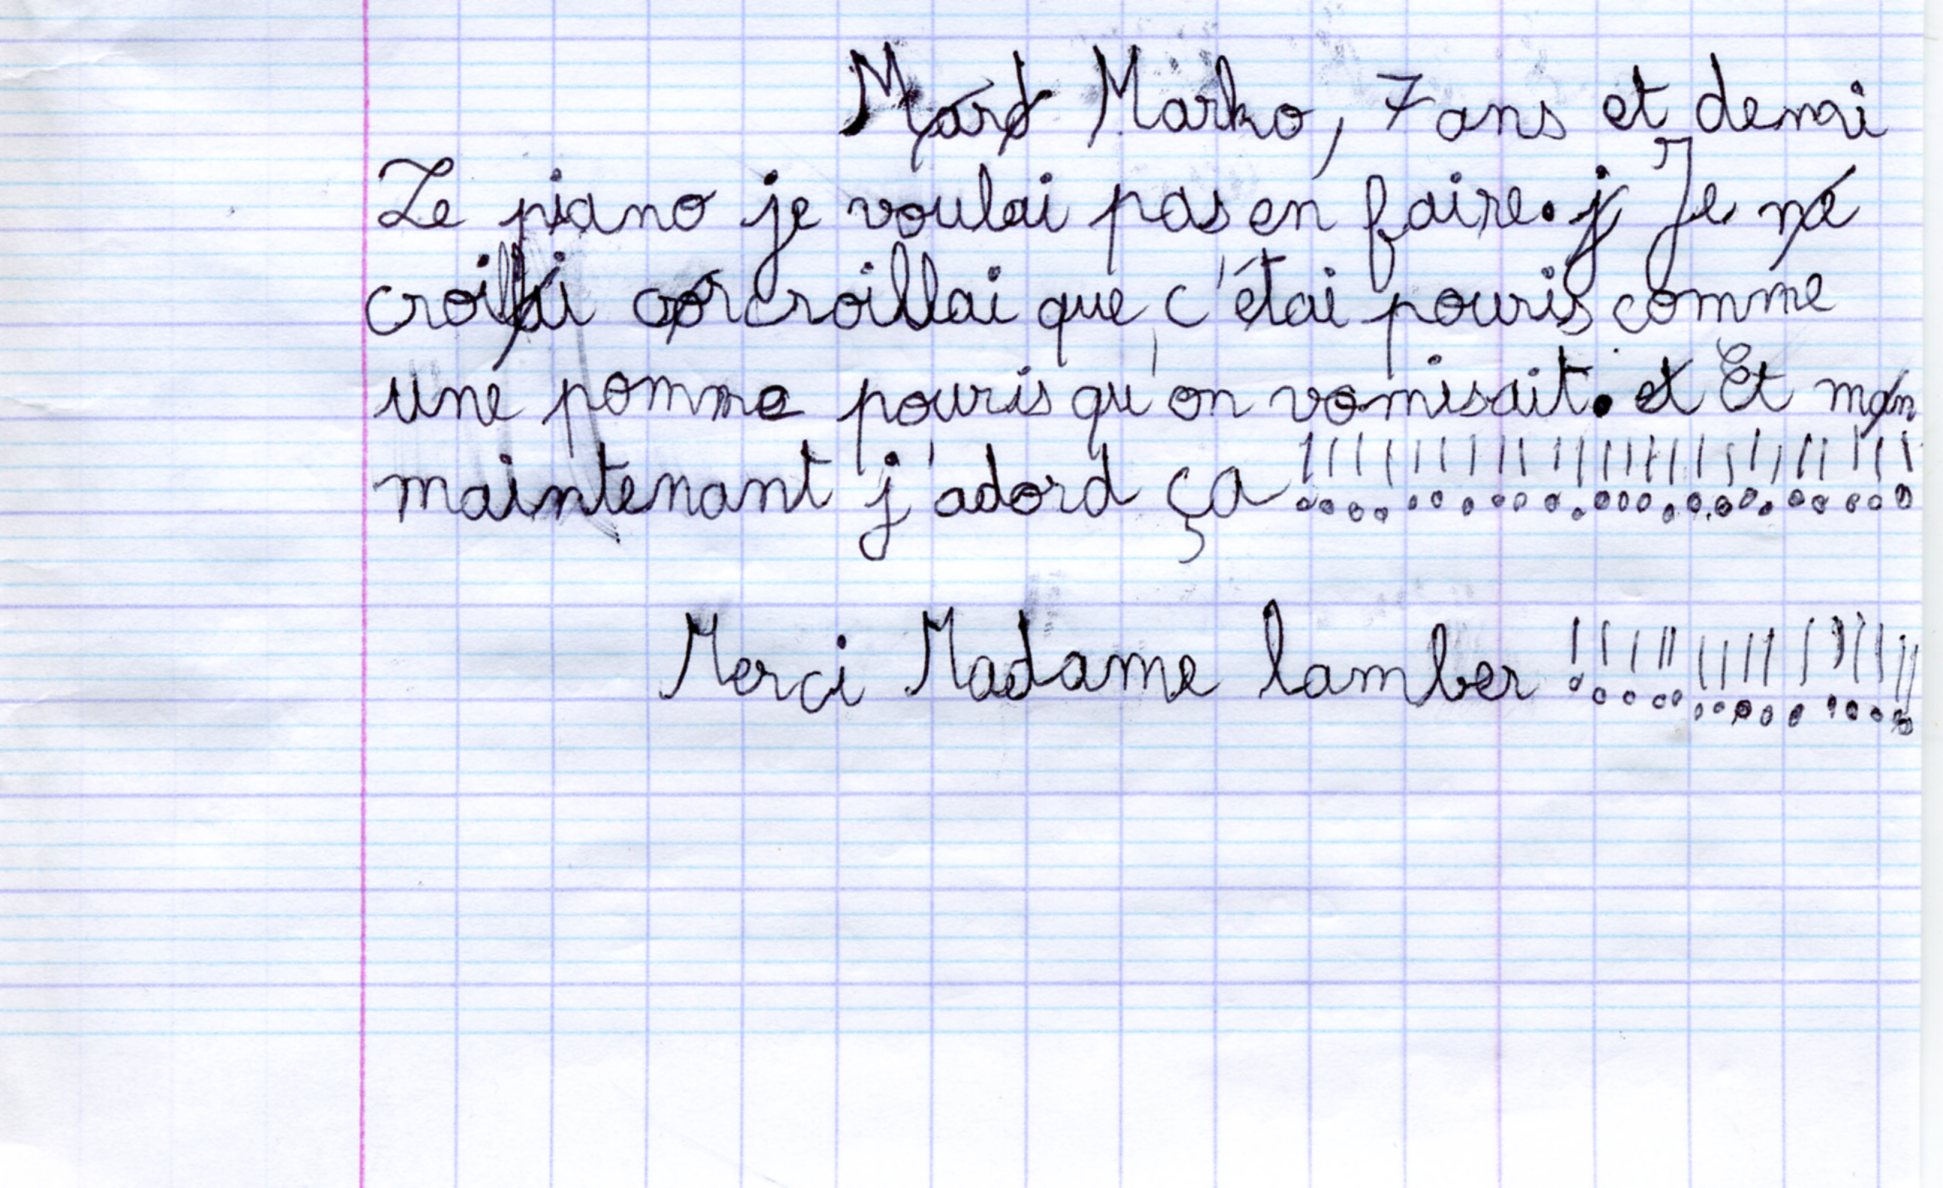 Mard Marko, 7 ans et demi
Le piano je voulai pas en faire. j Je ne
croillai cor croillai que c'étai pouris comme
une pomme pouris qu'on vomisait. et Et man
maintenant j'adord ça !!!!!!!!!!!!!!!!!!!!!!!!!
Merci Madame lamber !!!!!!!!!!!!!!!